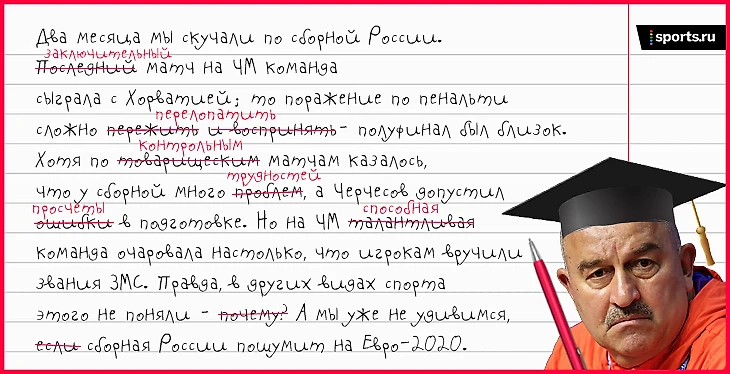 sports.ru
Два месяца мы скучали по сборной России.
заключительный
Последний матч на ЧМ команда
сыграла с Хорватией; то поражение по пенальти
перелопатить
сложно пережить и воспринять - полуфинал был близок.
контрольным
Хотя по товарищеским матчам казалось,
трудностей
что у сборной много проблем, а Черчесов допустил
просчёты способная
ошибки в подготовке. Но на ЧМ талантливая
команда очаровала настолько, что игрокам вручили
звания ЗМС. Правда, в других видах спорта
этого не поняли - почему? А мы уже не удивимся,
если сборная России пошумит на Евро-2020.